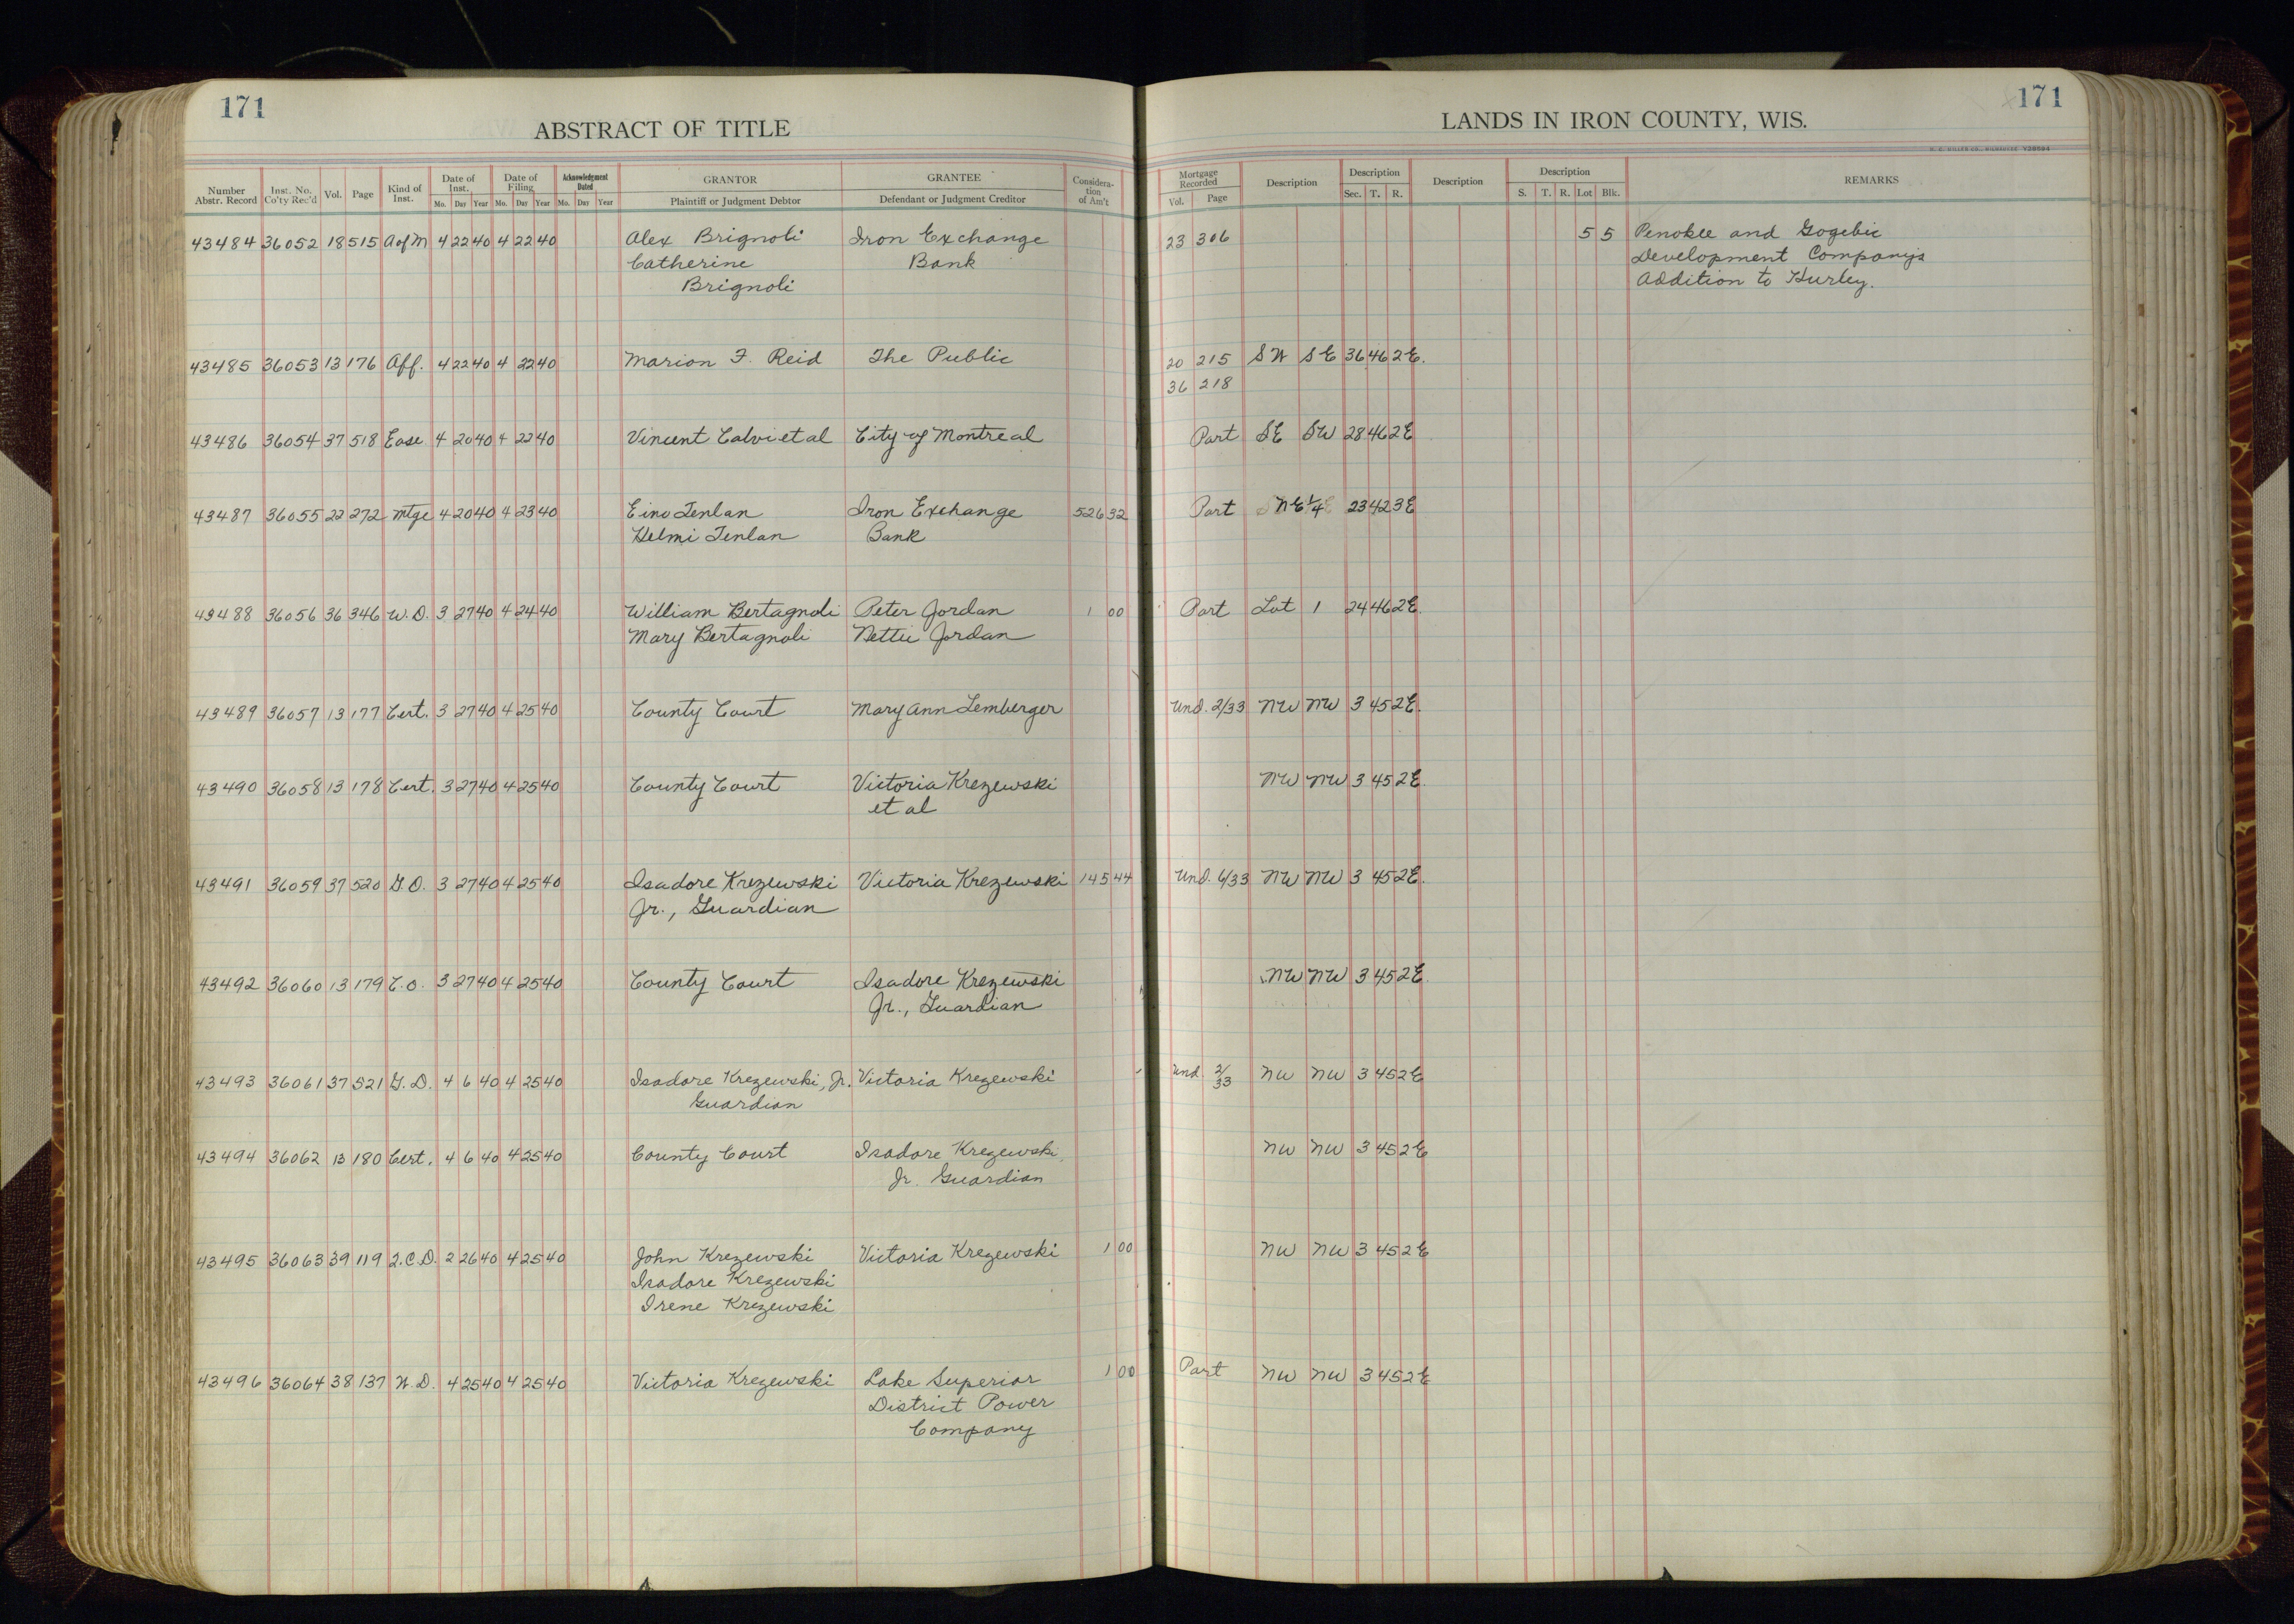 171
ABSTRACT OF TITLE
LANDS IN IRON COUNTY, WIS.
171
Number Abstr. Record Inst. No. Co'ty Rec'd Vol. Page Kind of Inst. Date of Inst. Mo. Day Year Date of Filing Mo. Day Year Acknowledgment Dated Mo. Day Year GRANTOR Plaintiff or Judgment Debtor GRANTEE Defendant or Judgment Creditor Considera-tion of Am't Mortgage Recorded Vol. Page Description Description Sec. T. R. Description Description S. T. R. Lot Blk. REMARKS
43484 36052 18 515 A of M 4 22 40 4 22 40 Alex Brignoli Iron Exchange 23 306 5 5 Penokee and Gogebic
Catherine Bank Development Company's
Brignoli Addition to Hurley.
43485 36053 13 176 Aff. 4 22 40 4 22 40 Marion F. Reid The Public 20 215 SW SE 36 46 2E.
36 218
43486 36054 37 518 Ease 4 20 40 4 22 40 Vincent Calvi et al City of Montreal Part SE SW 28 46 2E
43487 36055 22 272 Mtge 4 20 40 4 23 40 Eino Tenlan Iron Exchange 526 32 Part NE 1/4 23 42 3E
Helmi Tenlan Bank
43488 36056 36 346 W.D. 3 27 40 4 24 40 William Bertagnoli Peter Jordan 1 00 Part Lot 1 24 46 2E.
Mary Bertagnoli Nettie Jordan
43489 36057 13 177 Cert. 3 27 40 4 25 40 County Court Mary Ann Lemberger Und. 2/33 NW NW 3 45 2E.
43490 36058 13 178 Cert. 3 27 40 4 25 40 County Court Victoria Krezewski NW NW 3 45 2E.
et al
43491 36059 37 520 G.D. 3 27 40 4 25 40 Isadore Krezewski Victoria Krezewski 145 44 Und. 6/33 NW NW 3 45 2E.
Jr., Guardian
43492 36060 13 179 C.O. 3 27 40 4 25 40 County Court Isadore Krezewski NW NW 3 45 2E.
Jr., Guardian
43493 36061 37 521 G.D. 4 6 40 4 25 40 Isadore Krezewski, Jr. Victoria Krezewski Und. 2/33 NW NW 3 45 2E
Guardian
43494 36062 13 180 Cert. 4 6 40 4 25 40 County Court Isadore Krezewski, NW NW 3 45 2E
Jr. Guardian
43495 36063 39 119 Q.C.D. 2 26 40 4 25 40 John Krezewski Victoria Krezewski 1 00 NW NW 3 45 2E
Isadore Krezewski
Irene Krezewski
43496 36064 38 137 W.D. 4 25 40 4 25 40 Victoria Krezewski Lake Superior 1 00 Part NW NW 3 45 2E
District Power
Company